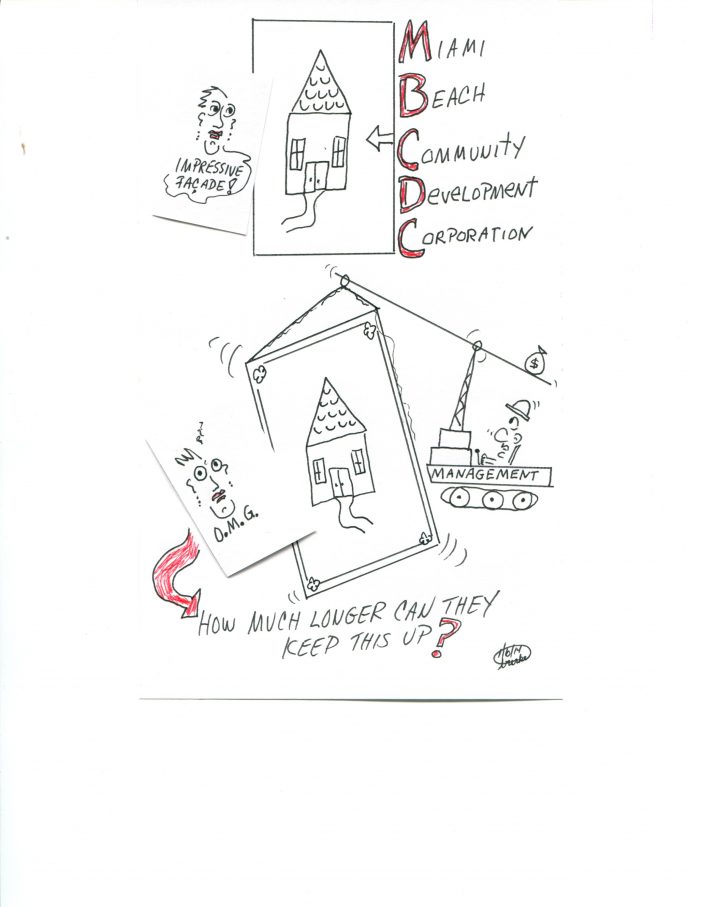 MIAMI
BEACH
COMMUNITY
DEVELOPMENT
CORPORATION
IMPRESSIVE
FAÇADE!
$
MANAGEMENT
O.M.G.
HOW MUCH LONGER CAN THEY
KEEP THIS UP?